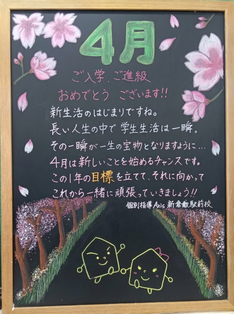 4月
ご入学、ご進級
おめでとう ございます!!
新生活のはじまりですね。
長い人生の中で 学生生活は一瞬。
その一瞬が一生の宝物となりますように…
4月は新しいことを始めるチャンスです。
この1年の目標を立てて、それに向かって
これから一緒に頑張っていきましょう!!
個別指導Axis 新倉敷駅前校